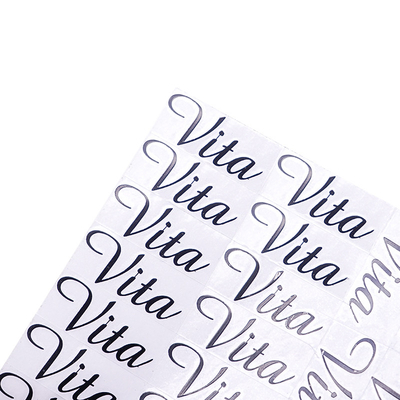 Vita
Vita
Vita
Vita
Vita
Vita
Vita
Vita
Vita
Vita
Vita
Vita
Vita